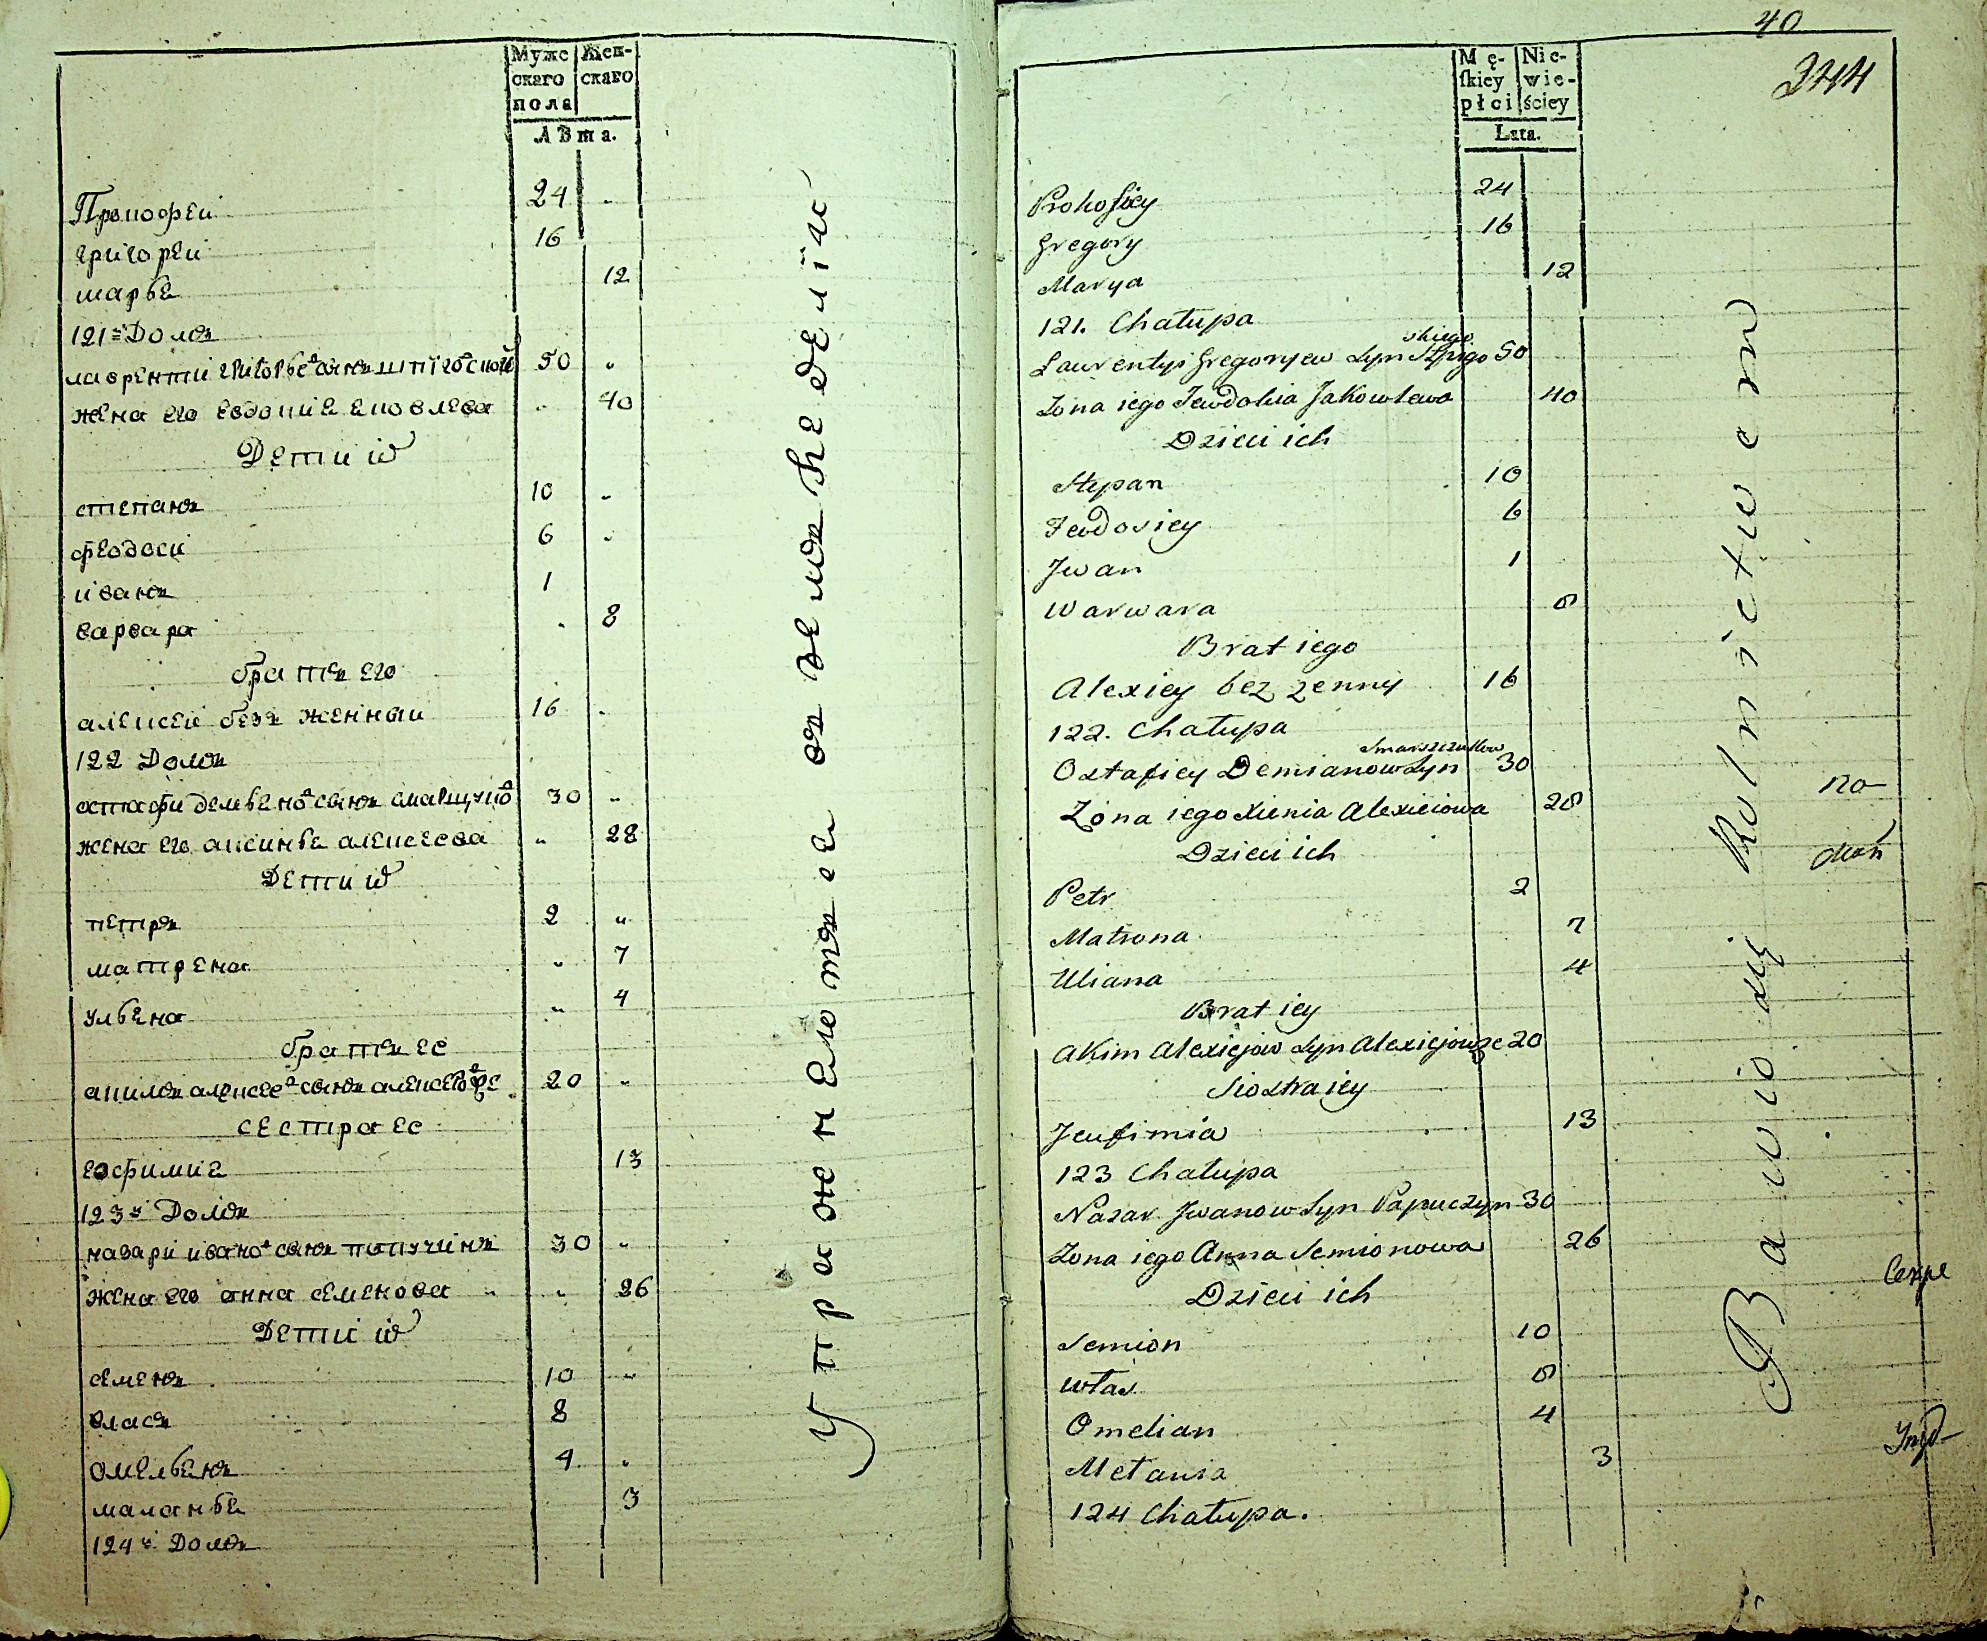 Мужс Жен-
скаго скаго
пола
Лѣта.
Прокофеи 24 "
григореи 16
марья 12
121й Домъ
лаврентии григорьевъ сынъ шпиговской 50 "
жена его евдокия яковлева " 40
Дети их
степанъ 10 "
феодосии 6 "
иванъ 1
варвара " 8
братъ его
алексеи безъ женныи 16 "
122 Домъ
остафи демьяновъ сынъ смарщуковъ 30 "
жена его аксинья алексеева " 28
Дети их
петръ 2 "
матрена " 7
ульяна " 4
братъ ее
акимъ алексеевъ сынъ алексеовже 20 "
сестра ее
евфимия 13
123й Домъ
назари ивановъ сынъ папучинъ 30 "
жена его анна семенова " 26
Дети их
семенъ 10 "
власъ 8
омельянъ 4 "
маланья 3
124й Домъ
Упражняютъся въ земледелие
40
244
Mę- Nie-
skiey wie-
płci ściey
Lata.
Prokofiey 24
Gregory 16
Marya 12
121. Chałupa
skiego
Laurentyi Gregoryew Syn Szpigo 50
Zona iego Jewdokia Jakowlewa 40
Dzieci ich
Stepan 10
Fewdosiey 6
Jwan 1
Warwara 8
Brat iego
Alexiey bez zenny 16
122. Chałupa
Smarszczukow
Ostafiey Demianow Syn 30
Zona iego Xienia Alexieiowa 28
Dzieci ich
Petr 2
Matrona 7
Uliana 4
Brat iey
Akim Alexiejow Syn Alexiejowże 20
Siostra iey
Jeufimia 13
123 Chałupa
Nazar Jwanow Syn Papuczyn 30
Zona iego Anna Semionowa 26
Dzieci ich
Semion 10
Włas 8
Omelian 4
Mełania 3
124 Chałupa.
Bawio się Rolnictwem